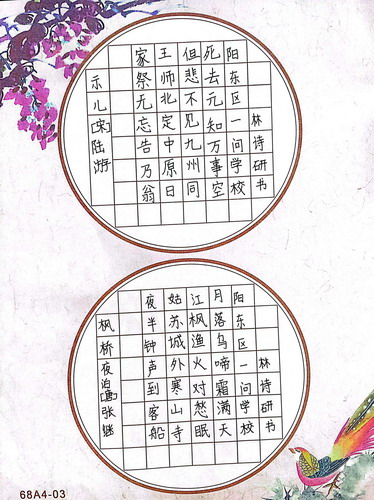 林诗研书
阳东区一问学校
死去元知万事空
但悲不见九州同
王师北定中原日
家祭无忘告乃翁
示儿[宋]陆游
林诗研书
阳东区一问学校
月落乌啼霜满天
江枫渔火对愁眠
姑苏城外寒山寺
夜半钟声到客船
枫桥夜泊[唐]张继
68A4-03